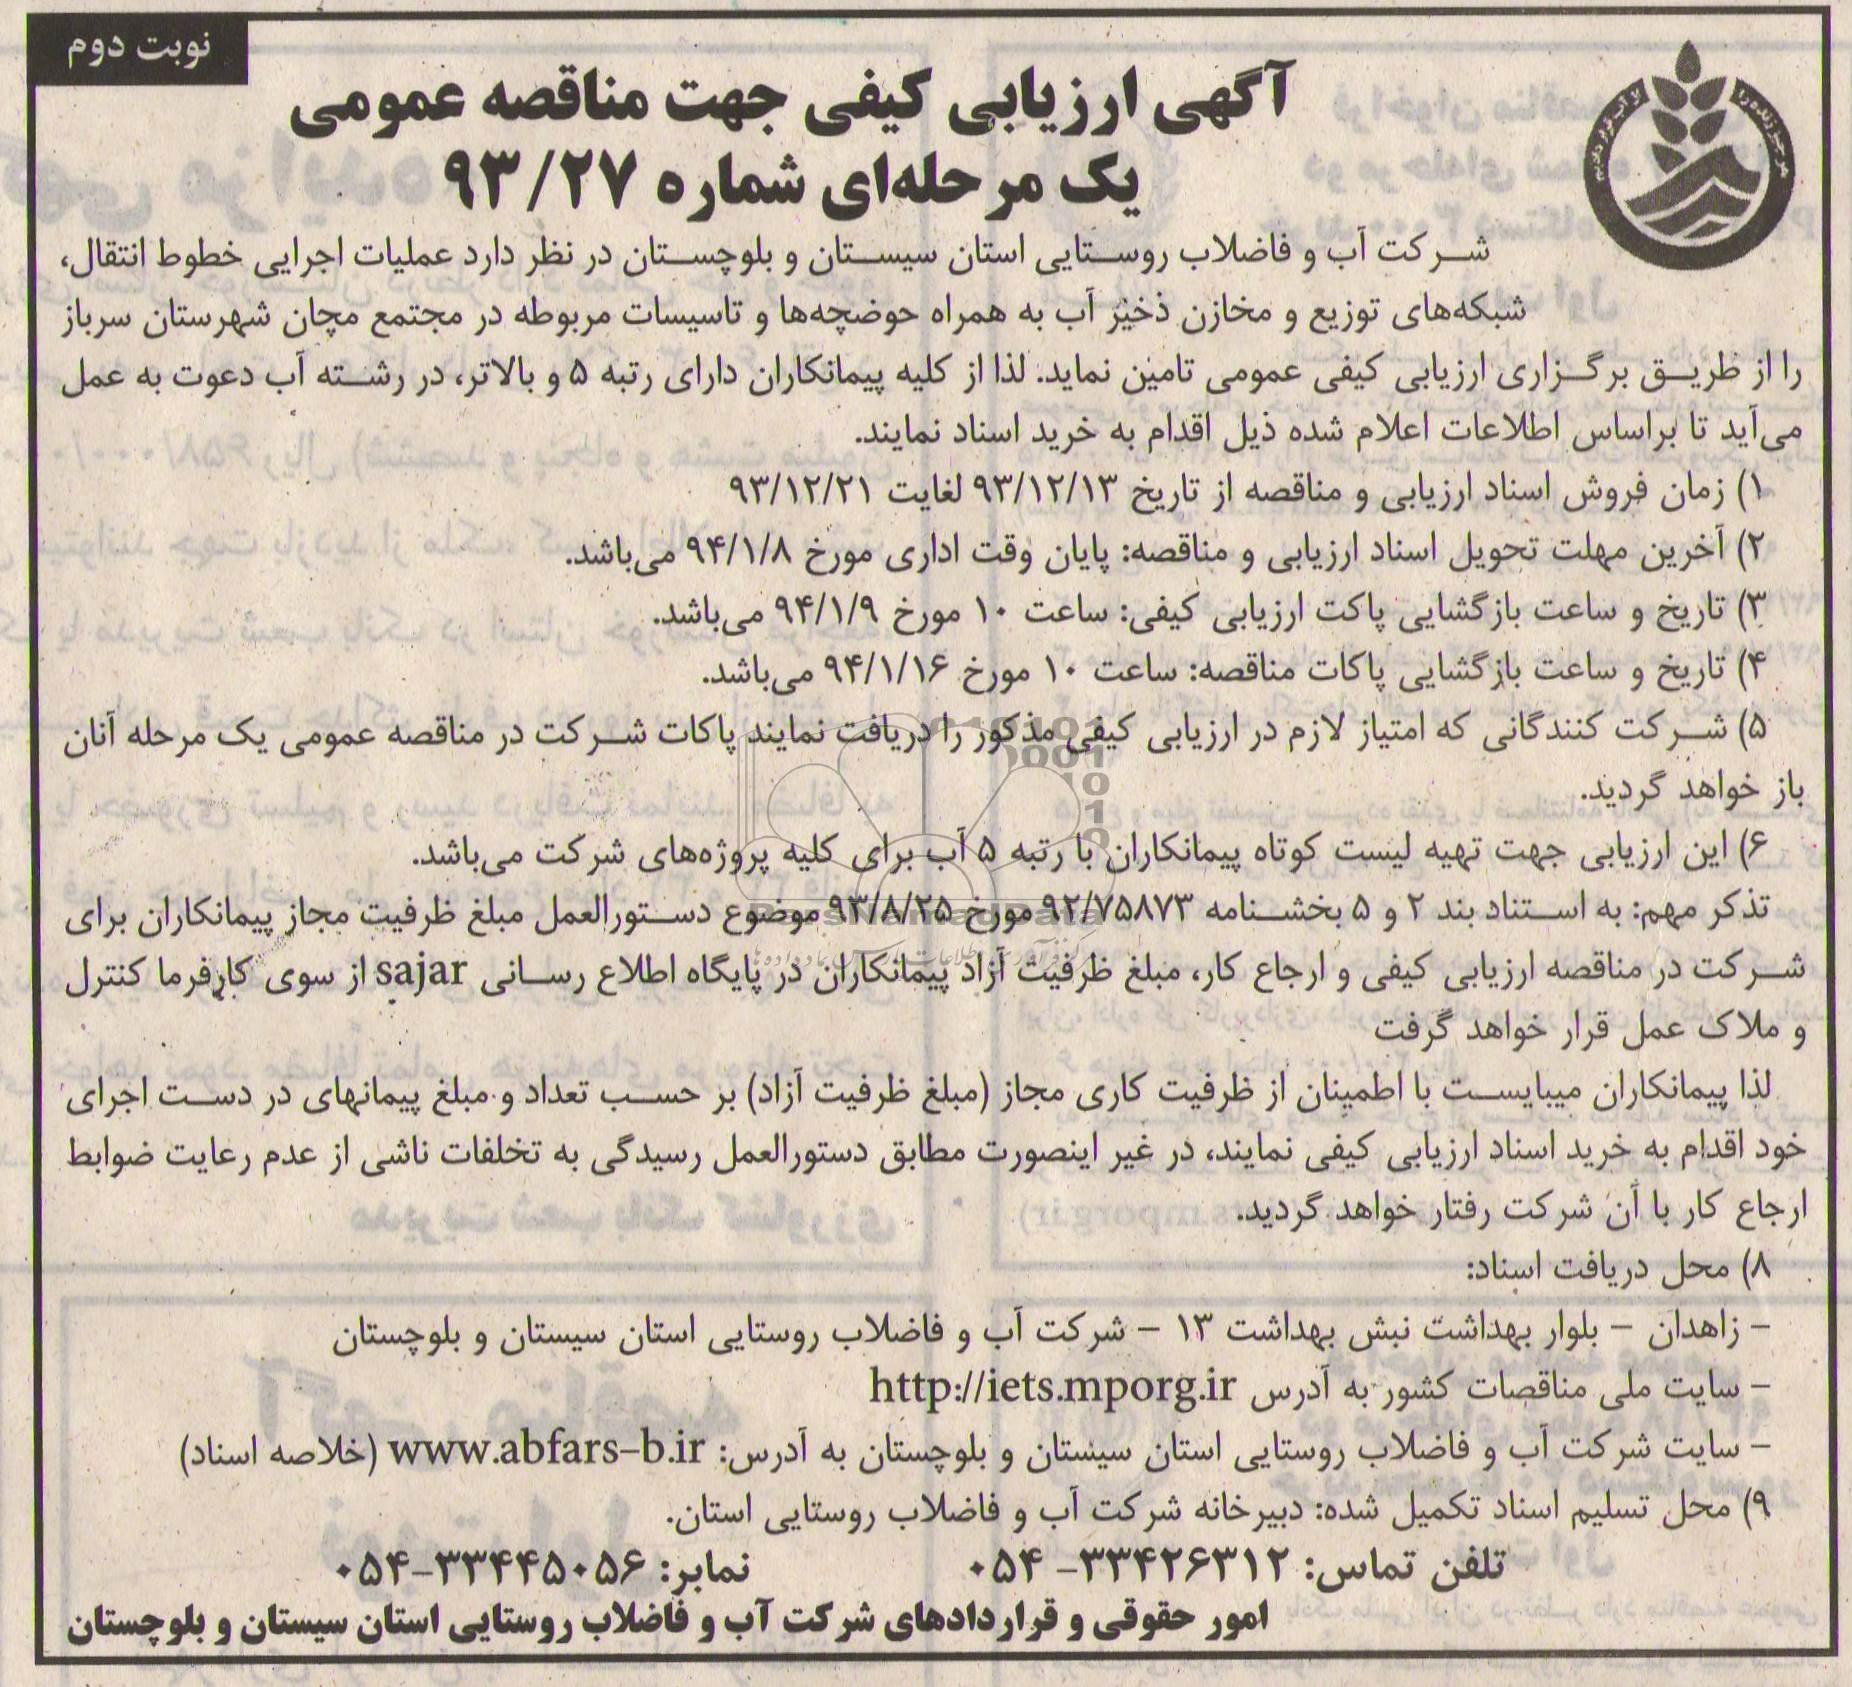 نوبت دوم
آگهی ارزیابی کیفی جهت مناقصه عمومی
یک مرحله‌ای شماره ۹۳/۲۷
شرکت آب و فاضلاب روستایی استان سیستان و بلوچستان در نظر دارد عملیات اجرایی خطوط انتقال،
شبکه‌های توزیع و مخازن ذخیز آب به همراه حوضچه‌ها و تاسیسات مربوطه در مجتمع مچان شهرستان سرباز
را از طریق برگزاری ارزیابی کیفی عمومی تامین نماید. لذا از کلیه پیمانکاران دارای رتبه ۵ و بالاتر، در رشته آب دعوت به عمل
می‌آید تا براساس اطلاعات اعلام شده ذیل اقدام به خرید اسناد نمایند.
۱) زمان فروش اسناد ارزیابی و مناقصه از تاریخ ۹۳/۱۲/۱۳ لغایت ۹۳/۱۲/۲۱
۲) آخرین مهلت تحویل اسناد ارزیابی و مناقصه: پایان وقت اداری مورخ ۹۴/۱/۸ می‌باشد.
۳) تاریخ و ساعت بازگشایی پاکت ارزیابی کیفی: ساعت ۱۰ مورخ ۹۴/۱/۹ می‌باشد.
۴) تاریخ و ساعت بازگشایی پاکات مناقصه: ساعت ۱۰ مورخ ۹۴/۱/۱۶ می‌باشد.
۵) شرکت کنندگانی که امتیاز لازم در ارزیابی کیفی مذکور را دریافت نمایند پاکات شرکت در مناقصه عمومی یک مرحله آنان
باز خواهد گردید.
۶) این ارزیابی جهت تهیه لیست کوتاه پیمانکاران با رتبه ۵ آب برای کلیه پروژه‌های شرکت می‌باشد.
تذکر مهم: به استناد بند ۲ و ۵ بخشنامه ۹۲/۷۵۸۷۳ مورخ ۹۳/۸/۲۵ موضوع دستورالعمل مبلغ ظرفیت مجاز پیمانکاران برای
شرکت در مناقصه ارزیابی کیفی و ارجاع کار، مبلغ ظرفیت آزاد پیمانکاران در پایگاه اطلاع رسانی sajar از سوی کارفرما کنترل
و ملاک عمل قرار خواهد گرفت
لذا پیمانکاران میبایست با اطمینان از ظرفیت کاری مجاز (مبلغ ظرفیت آزاد) بر حسب تعداد و مبلغ پیمانهای در دست اجرای
خود اقدام به خرید اسناد ارزیابی کیفی نمایند، در غیر اینصورت مطابق دستورالعمل رسیدگی به تخلفات ناشی از عدم رعایت ضوابط
ارجاع کار با آن شرکت رفتار خواهد گردید.
۸) محل دریافت اسناد:
– زاهدان – بلوار بهداشت نبش بهداشت ۱۳ – شرکت آب و فاضلاب روستایی استان سیستان و بلوچستان
– سایت ملی مناقصات کشور به آدرس http://iets.mporg.ir
– سایت شرکت آب و فاضلاب روستایی استان سیستان و بلوچستان به آدرس: www.abfars-b.ir (خلاصه اسناد)
۹) محل تسلیم اسناد تکمیل شده: دبیرخانه شرکت آب و فاضلاب روستایی استان.
تلفن تماس: ۳۳۴۲۶۳۱۲-۰۵۴ نمابر: ۳۳۴۴۵۰۵۶-۰۵۴
امور حقوقی و قراردادهای شرکت آب و فاضلاب روستایی استان سیستان و بلوچستان